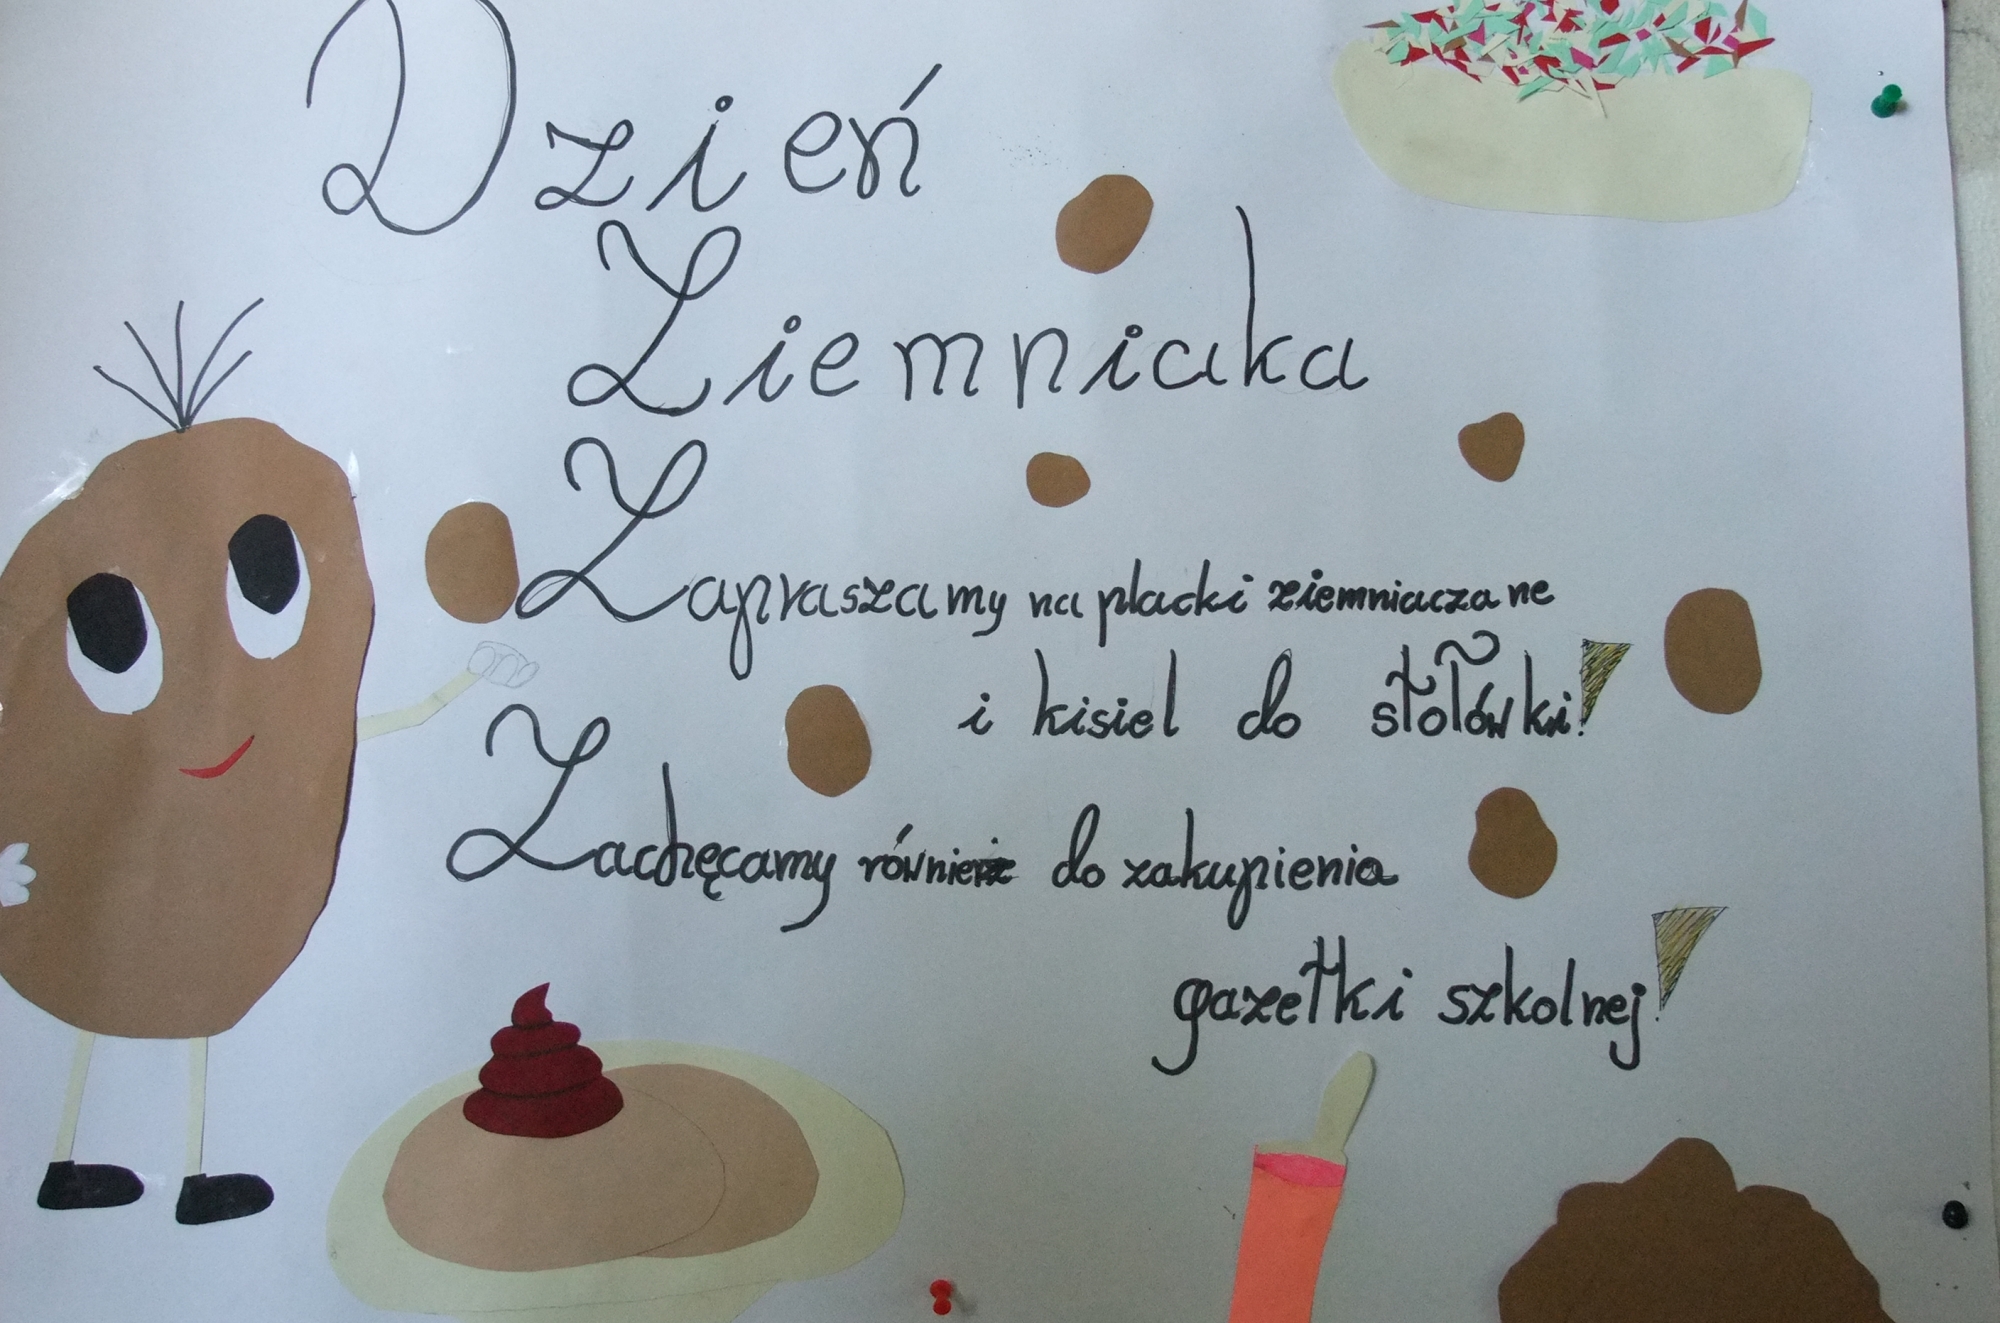 Dzień
Ziemniaka
Zapraszamy na placki ziemniaczane
i kisiel do stołówki!
Zachęcamy również do zakupienia
gazetki szkolnej!